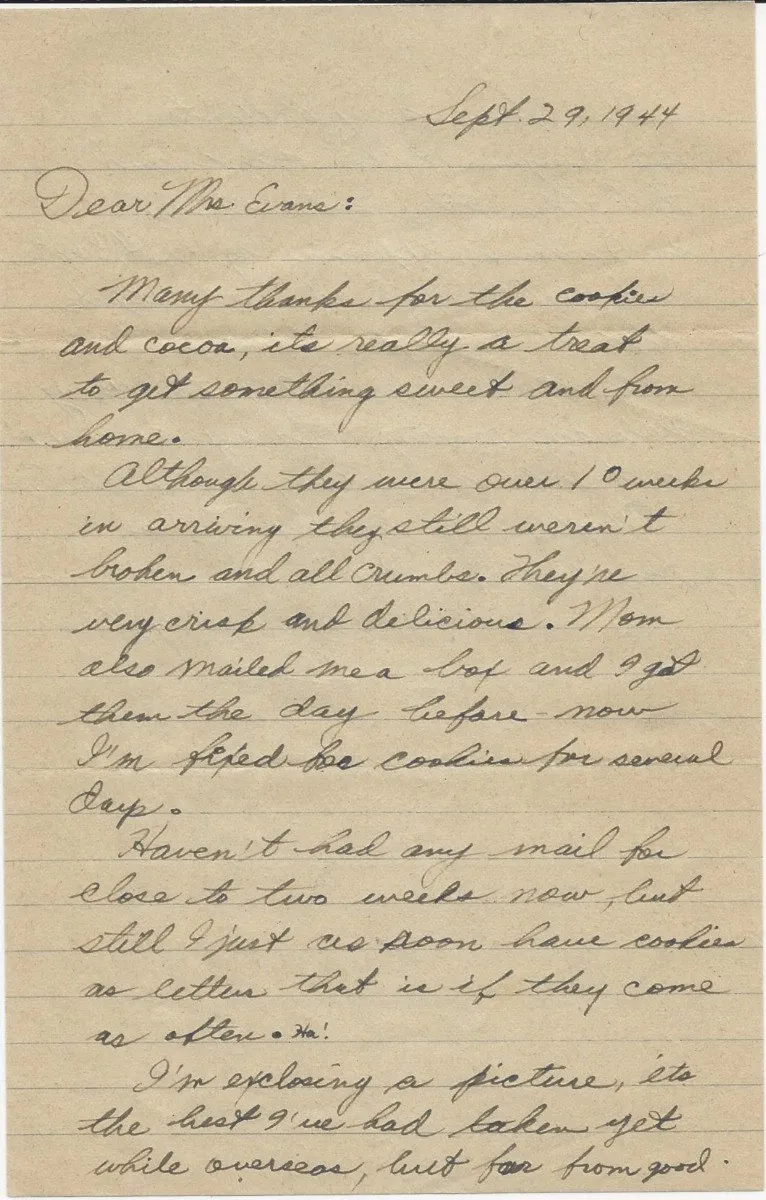 Sept. 29, 1944
Dear Mrs Evans:
Many thanks for the cookies
and cocoa, its really a treat
to get something sweet and from
home.
Although they were over 10 weeks
in arriving they still weren't
broken and all crumbs. They're
very crisp and delicious. Mom
also mailed me a box and I got
them the day before - now
I'm fixed for cookies for several
days.
Haven't had any mail for
close to two weeks now, but
still I just as soon have cookies
as letter that is if they come
as often. Ha!
I'm exclosing a picture, its
the best I've had taken yet
while overseas, but far from good.